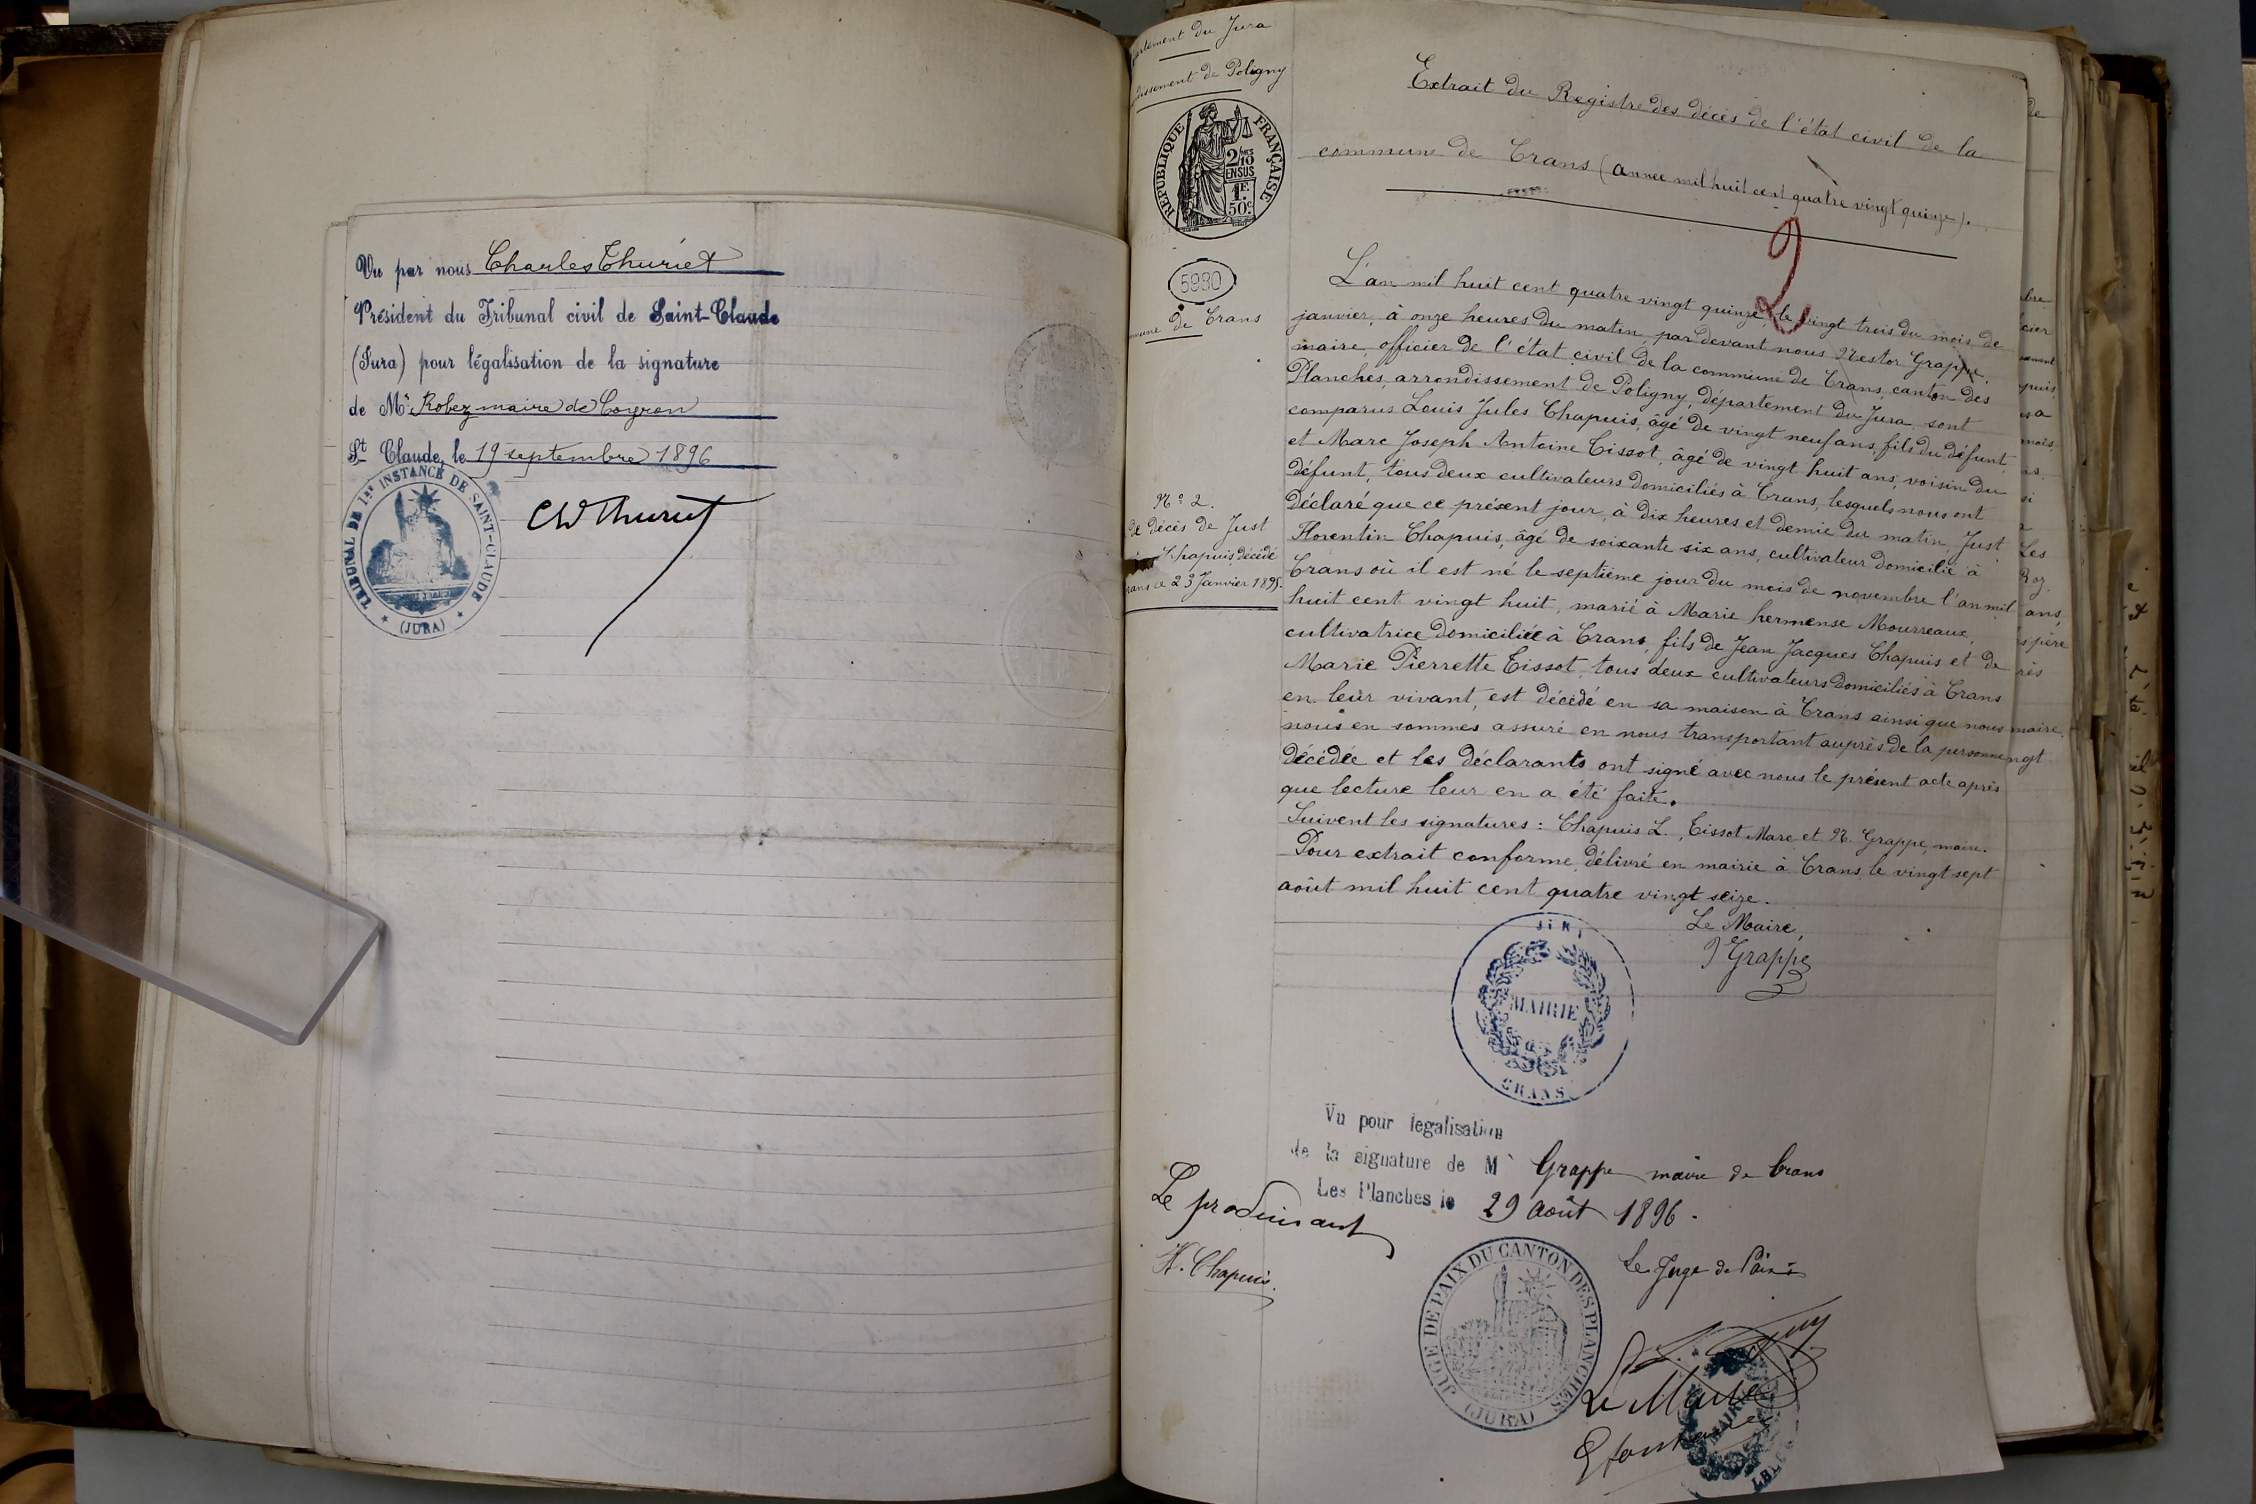 Vu par nous Charles Thuriet
Président du Tribunal civil de Saint-Claude
(Jura) pour légalisation de la signature
de Mr Robez maire de Coyron
St Claude, le 19 septembre 1896
TRIBUNAL DE 1re INSTANCE DE SAINT-CLAUDE
(JURA)
Ch Thuriet
artement du Jura
dissement de Poligny
RÉPUBLIQUE FRANÇAISE
2/10 EN SUS
1F. 50c
5980
mune de Crans
No 2.
de décès de Just
Chapuis, décédé
rans le 23 Janvier 1895.
Extrait du Registre des décès de l'état civil de la
commune de Crans (année mil huit cent quatre vingt quinze).
2
L'an mil huit cent quatre vingt quinze, le vingt trois du mois de
janvier, à onze heures du matin, par devant nous Nestor Grappe,
maire, officier de l'état civil de la commune de Crans, canton des
Planches, arrondissement de Poligny, département du Jura, sont
comparus Louis Jules Chapuis, âgé de vingt neuf ans, fils du défunt,
et Marc Joseph Antoine Tissot, âgé de vingt huit ans, voisin du
défunt, tous deux cultivateurs domiciliés à Crans, lesquels nous ont
déclaré que ce présent jour, à dix heures et demie du matin, Just
Florentin Chapuis, âgé de soixante six ans, cultivateur domicilié à
Crans où il est né le septième jour du mois de novembre l'an mil
huit cent vingt huit, marié à Marie hermense Mourreaux,
cultivatrice domiciliée à Crans, fils de Jean Jacques Chapuis et de
Marie Pierrette Tissot, tous deux cultivateurs domiciliés à Crans
en leur vivant, est décédé en sa maison à Crans ainsi que nous
nous en sommes assuré en nous transportant auprès de la personne
décédée et les déclarants ont signé avec nous le présent acte après
que lecture leur en a été faite.
Suivent les signatures : Chapuis L., Tissot Marc et N. Grappe, maire.
Pour extrait conforme, délivré en mairie à Crans, le vingt sept
août mil huit cent quatre vingt seize.
Le Maire,
Grappe
MAIRIE
CRANS
Vu pour légalisation
de la signature de Mr Grappe maire de Crans
Les Planches le 29 août 1896.
Le produisant
H. Chapuis.
Le Juge de Paix
JUGE DE PAIX DU CANTON DES PLANCHES
(JURA)
Le Maire
MAIRIE